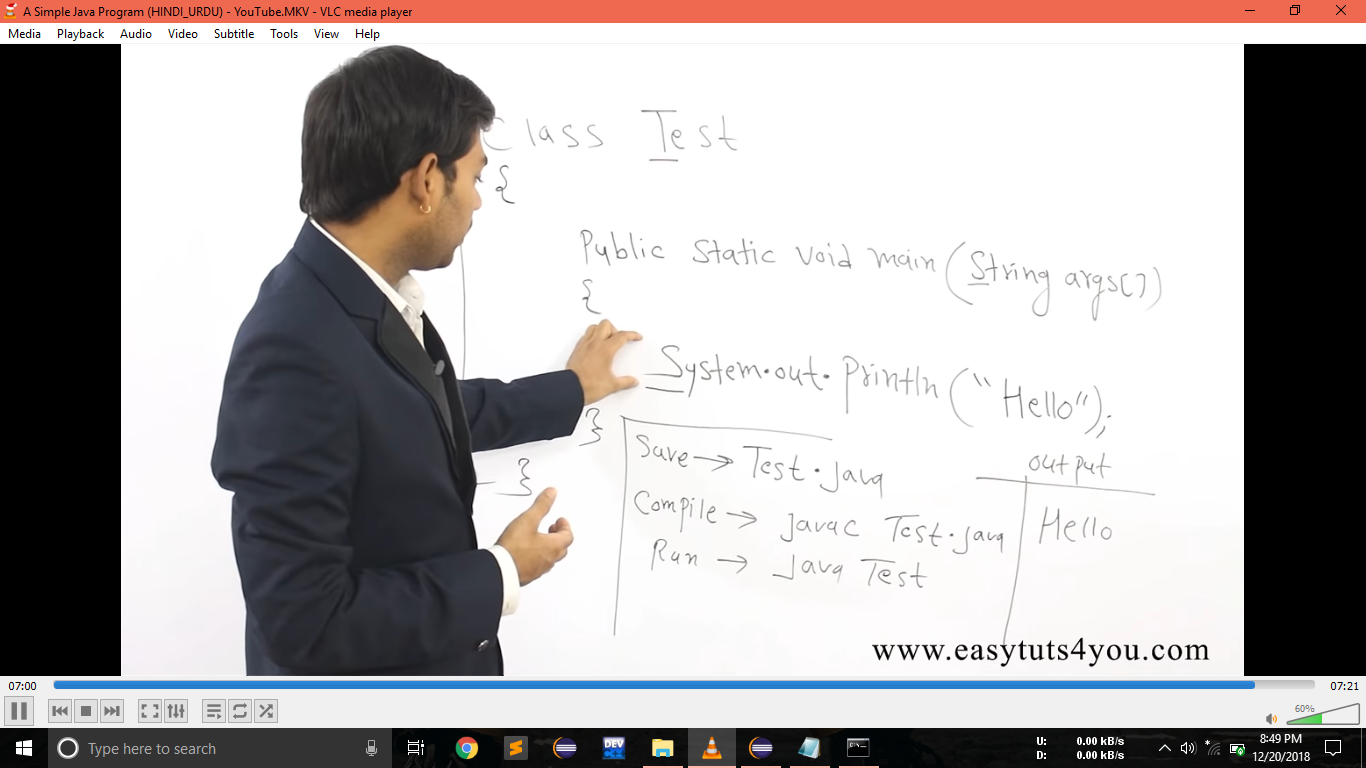 A Simple Java Program (HINDI_URDU) - YouTube.MKV - VLC media player
Media Playback Audio Video Subtitle Tools View Help
Class Test
{
Public Static void main (String args[])
{
System.out.println ("Hello");
}
}
Save → Test.java
Compile → javac Test.java
Run → Java Test
output
Hello
www.easytuts4you.com
07:00
07:21
60%
Type here to search
DEV
U: 0.00 kB/s
D: 0.00 kB/s
8:49 PM
12/20/2018